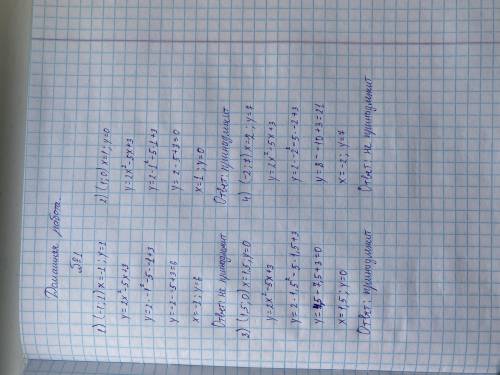 Домашняя работа.
№1
1) (-1; 2) x = -1; y = 2
y = 2x² - 5x + 3
y = 2 · -1² - 5 · -1 + 3
x = -1; y = 6
Ответ: не принадлежит
2) (1; 0) x = 1; y = 0
y = 2x² - 5x + 3
y = 2 · 1² - 5 · 1 + 3
y = 2 - 5 + 3 = 0
x = 1; y = 0
Ответ: принадлежит
3) (1,5; 0) x = 1,5; y = 0
y = 2x² - 5x + 3
y = 2 · 1,5² - 5 · 1,5 + 3
y = 4,5 - 7,5 + 3 = 0
x = 1,5; y = 0
Ответ: принадлежит
4) (-2; 7) x = -2; y = 7
y = 2x² - 5x + 3
y = 2 · -2² - 5 · -2 + 3
y = 8 - -10 + 3 = 21
x = -2; y = 7
Ответ: не принадлежит